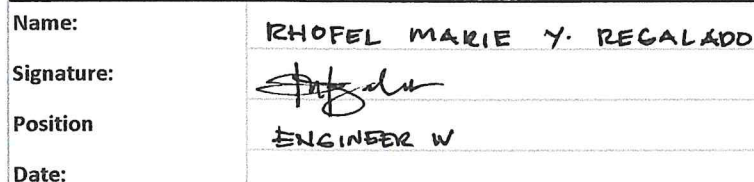 Name: RHOFEL MARIE Y. REGALADO
Signature:
Position ENGINEER IV
Date: